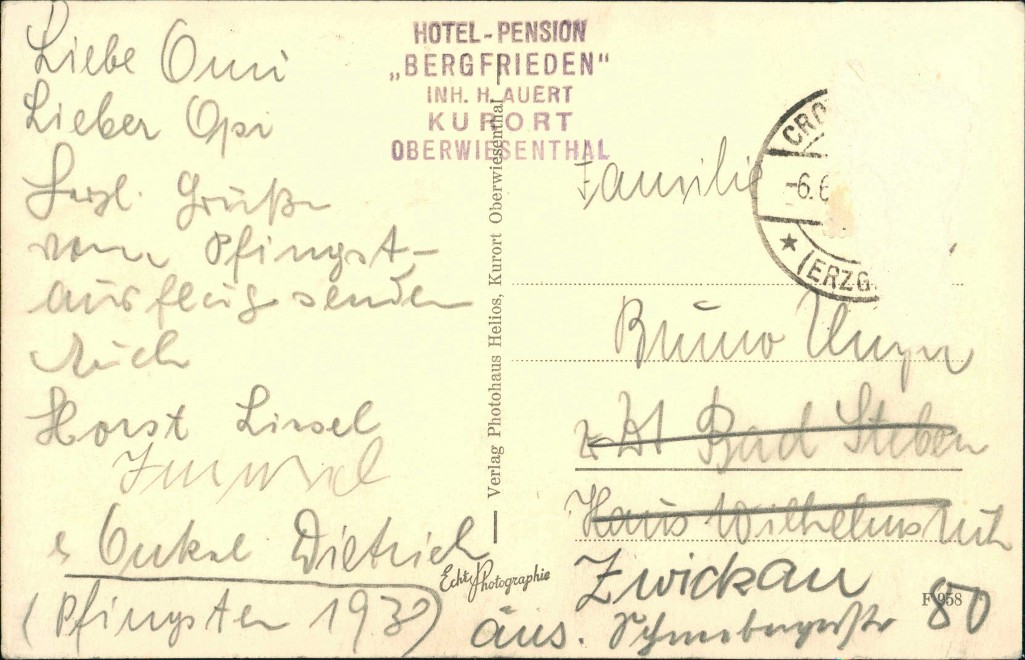 Liebe Omi
Lieber Opi
Herzl. Grüße
vom Pfingst-
ausflug senden
Euch
Horst Liesel
u. Onkel Dietrich
(Pfingsten 1938)
HOTEL-PENSION
„BERGFRIEDEN"
INH. H. AUERT
KURORT
OBERWIESENTHAL
Verlag Photohaus Helios, Kurort Oberwiesenthal
Echte Photographie
CRO
-6.6
(ERZG.
Familie
Bruno Unger
z. Zt Bad Steben
Haus Wilhelmsruh
Zwickau
äus. Schneebergerstr 80
F 958